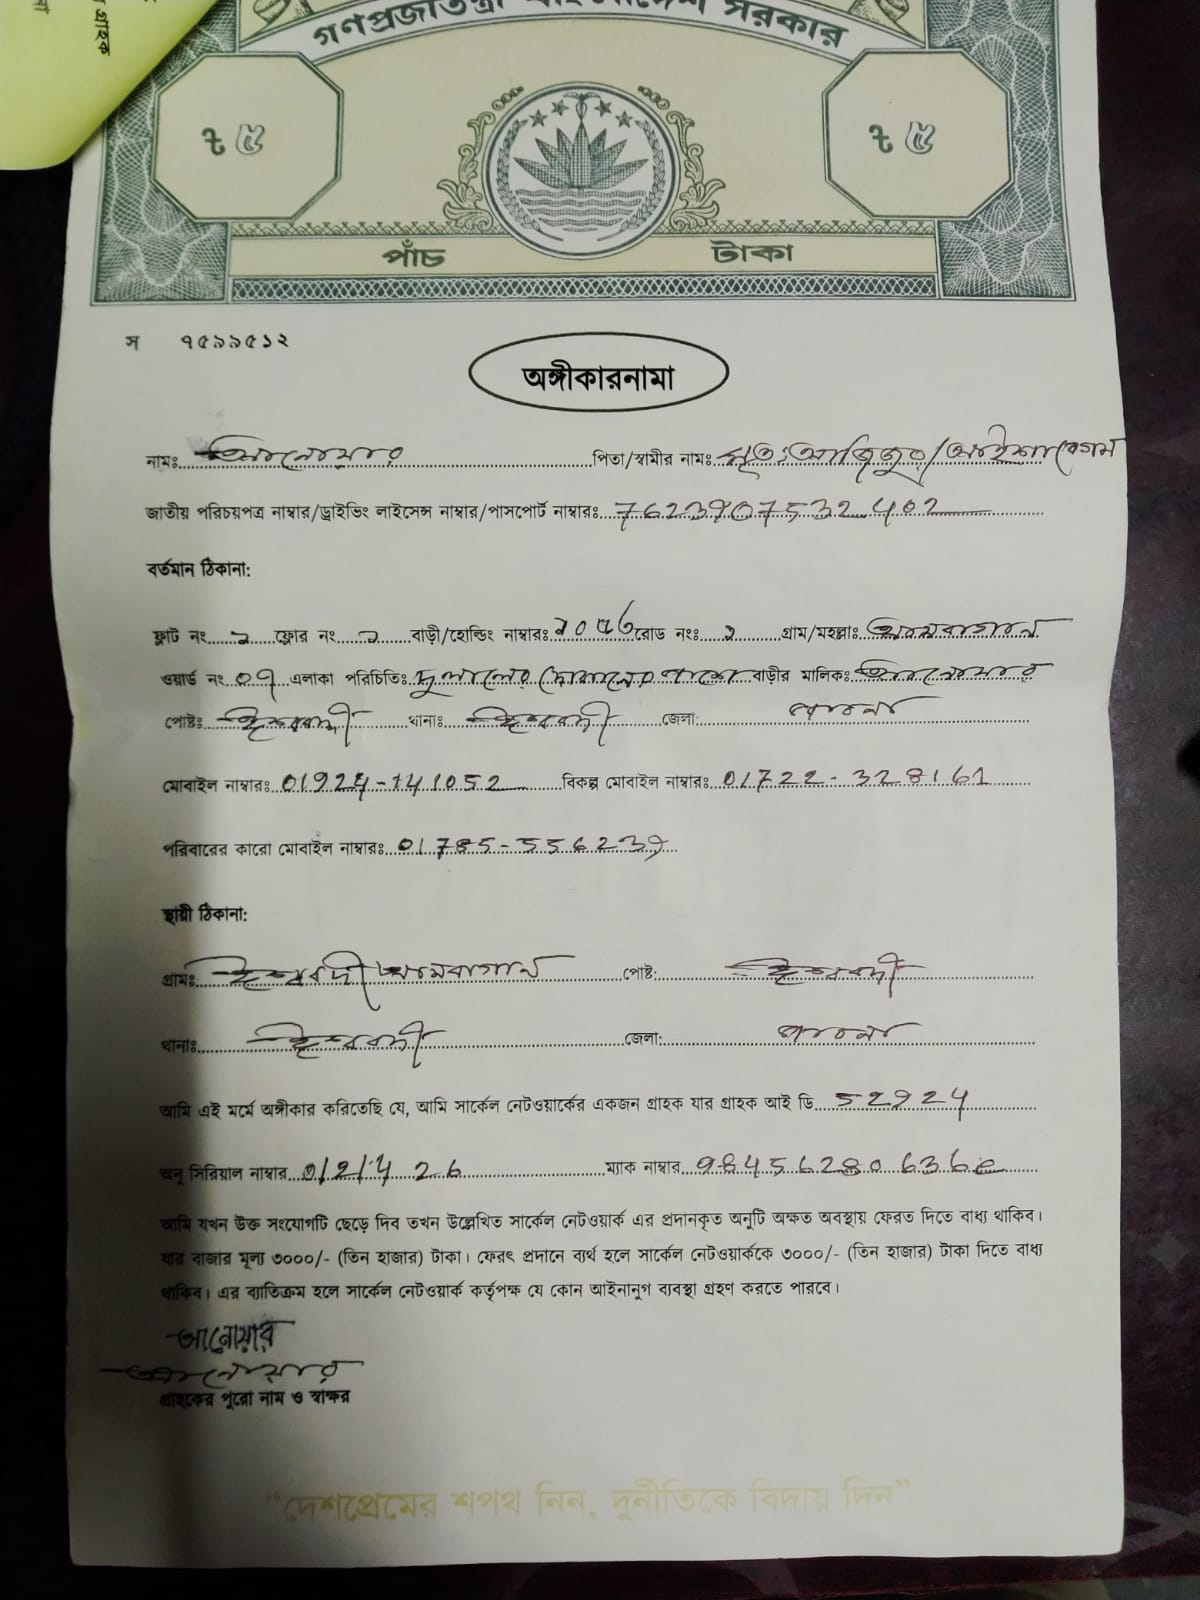 গ্রাহক
গণপ্রজাতন্ত্রী বাংলাদেশ সরকার
৳ ৫ ৳ ৫
পাঁচ টাকা
স ৭৫৯৯৫১২
অঙ্গীকারনামা
নামঃ আনোয়ার পিতা/স্বামীর নামঃ মৃতঃ আজিজুর/আইশা বেগম
জাতীয় পরিচয়পত্র নাম্বার/ড্রাইভিং লাইসেন্স নাম্বার/পাসপোর্ট নাম্বারঃ 7623907532402
বর্তমান ঠিকানা:
ফ্লাট নং ফ্লোর নং বাড়ী/হোল্ডিং নাম্বারঃ রোড নংঃ গ্রাম/মহল্লাঃ আমবাগান
ওয়ার্ড নং ০৭ এলাকা পরিচিতিঃ দুলালের দোকানের পাশে বাড়ীর মালিকঃ আনোয়ার
পোষ্টঃ ঈশ্বরদী থানাঃ ঈশ্বরদী জেলা: পাবনা
মোবাইল নাম্বারঃ 01924-141052 বিকল্প মোবাইল নাম্বারঃ 01722-328161
পরিবারের কারো মোবাইল নাম্বারঃ 01785-556239
স্থায়ী ঠিকানা:
গ্রামঃ ঈশ্বরদী আমবাগান পোষ্ট: ঈশ্বরদী
থানাঃ ঈশ্বরদী জেলা: পাবনা
আমি এই মর্মে অঙ্গীকার করিতেছি যে, আমি সার্কেল নেটওয়ার্কের একজন গ্রাহক যার গ্রাহক আই ডি 52924
অনু সিরিয়াল নাম্বার ম্যাক নাম্বার 98456280636e
আমি যখন উক্ত সংযোগটি ছেড়ে দিব তখন উল্লেখিত সার্কেল নেটওয়ার্ক এর প্রদানকৃত অনুটি অক্ষত অবস্থায় ফেরত দিতে বাধ্য থাকিব।
যার বাজার মূল্য ৩০০০/- (তিন হাজার) টাকা। ফেরৎ প্রদানে ব্যর্থ হলে সার্কেল নেটওয়ার্ককে ৩০০০/- (তিন হাজার) টাকা দিতে বাধ্য
থাকিব। এর ব্যাতিক্রম হলে সার্কেল নেটওয়ার্ক কর্তৃপক্ষ যে কোন আইনানুগ ব্যবস্থা গ্রহণ করতে পারবে।
আনোয়ার
আনোয়ার
গ্রাহকের পুরো নাম ও স্বাক্ষর
“দেশপ্রেমের শপথ নিন, দুর্নীতিকে বিদায় দিন”